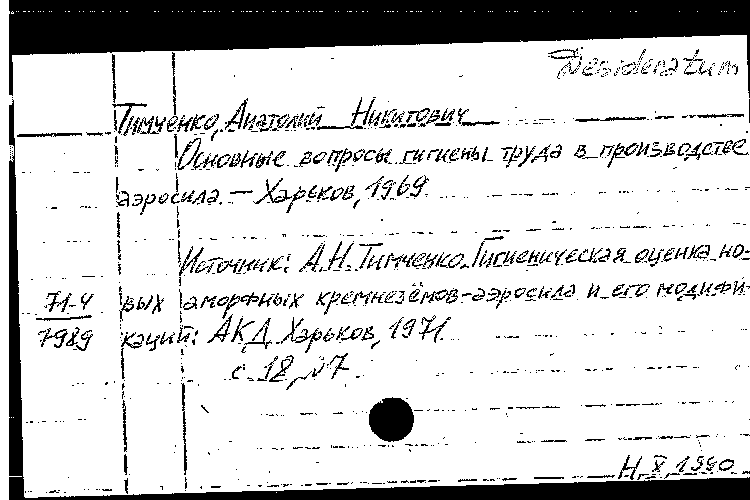 Desideratum
Тимченко, Анатолий Никитович
Основные вопросы гигиены труда в производстве
аэросила. — Харьков, 1969.
Источник: А.Н. Тимченко. Гигиеническая оценка но-
71-4 вых аморфных кремнезёмов-аэросила и его модифи-
7989 каций: АКД. Харьков, 1971.
с. 18, №7.
Н. X. 1990